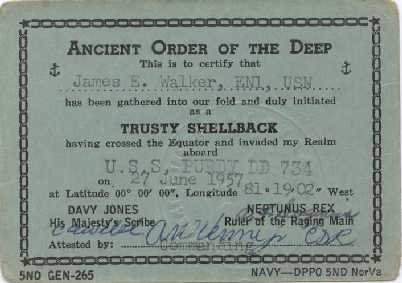 ANCIENT ORDER OF THE DEEP
This is to certify that
James E. Walker, EN1, USN
has been gathered into our fold and duly initiated
as a
TRUSTY SHELLBACK
having crossed the Equator and invaded my Realm
aboard
U.S.S. PURDY DD 734
on 27 June 1957
at Latitude 00° 00' 00", Longitude 81·19'02" West
DAVY JONES NEPTUNUS REX
His Majesty's Scribe Ruler of the Raging Main
Attested by: CDR
Commanding
5ND GEN-265 NAVY—DPPO 5ND NorVa